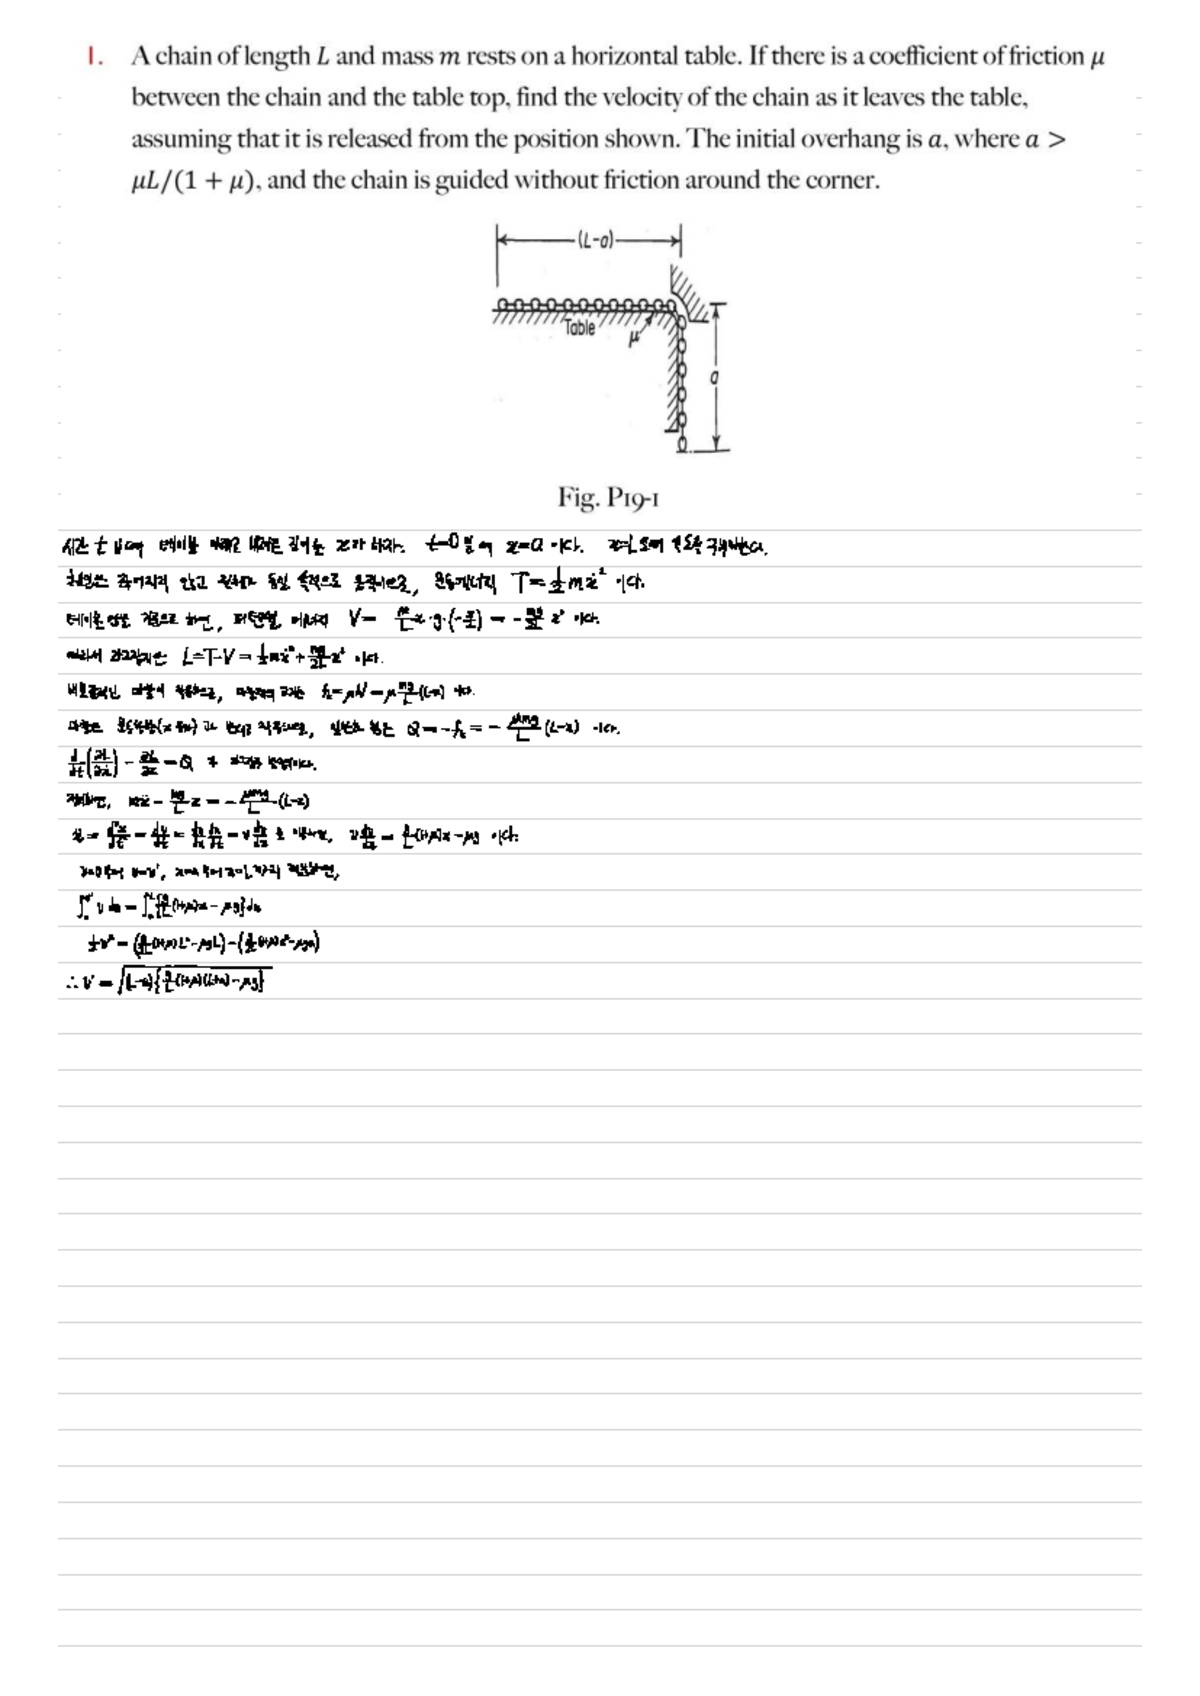 1. A chain of length L and mass m rests on a horizontal table. If there is a coefficient of friction μ
between the chain and the table top, find the velocity of the chain as it leaves the table,
assuming that it is released from the position shown. The initial overhang is a, where a >
μL/(1 + μ), and the chain is guided without friction around the corner.
(L-a)
Table
μ
a
Fig. P19-1
시간 t 일 때 테이블 아래로 내려온 길이를 x라 하자. t=0일 때 x=a 이다. x=L일 때 속도를 구해야한다.
체인은 늘어나지 않고 전체가 동일 속력으로 움직이므로, 운동에너지 T=½mẋ² 이다.
테이블 면을 기준으로 하면, 퍼텐셜 에너지 V= m/L x·g·(-x/2) = -mg/2L x² 이다.
따라서 라그랑지안은 L=T-V=½mẋ²+mg/2L x² 이다.
f=μN=μ mg/L (L-x)
Q=-f=-μmg/L (L-x) 이다.
d/dt(∂L/∂ẋ)-∂L/∂x=Q
mẍ-mg/L x=-μmg/L (L-x)
ẍ=d²x/dt²=dv/dt=dv/dx dx/dt=v dv/dx v dv/dx=g/L(1+μ)x-μg 이다.
∫ v dv=∫{g/L(1+μ)x-μg}dx
½v²=(g/2L(1+μ)L²-μgL)-(g/2L(1+μ)a²-μga)